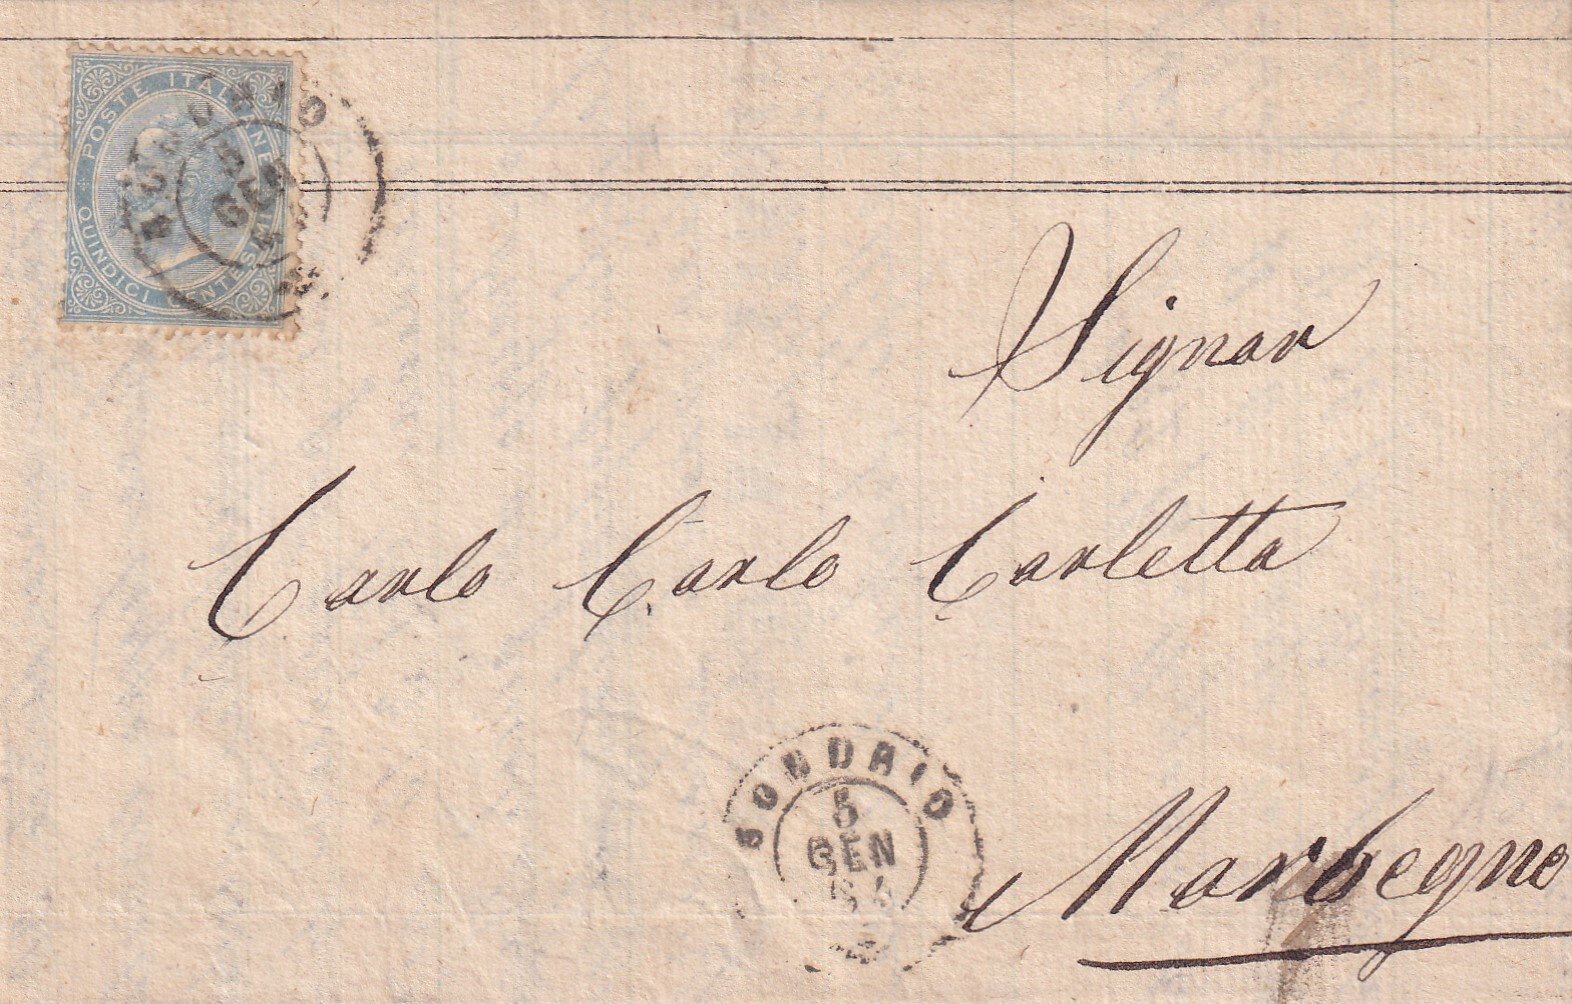 POSTE ITALIANE
QUINDICI CENTESIMI
SONDRIO
5
GEN
Signor
Carlo Carlo Carletta
SONDRIO
5
GEN
65
Morbegno